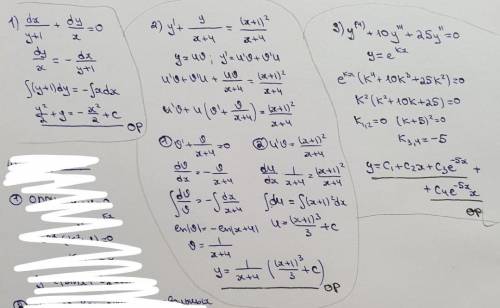 1) dx/(y+1) + dy/x = 0
dy/x = - dx/(y+1)
∫(y+1)dy = -∫xdx
y²/2 + y = - x²/2 + C
OP
2) y' + y/(x+4) = (x+1)²/(x+4)
y = uϑ; y' = u'ϑ + ϑ'u
u'ϑ + ϑ'u + uϑ/(x+4) = (x+1)²/(x+4)
u'ϑ + u(ϑ' + ϑ/(x+4)) = (x+1)²/(x+4)
① ϑ' + ϑ/(x+4) = 0
dϑ/dx = - ϑ/(x+4)
∫dϑ/ϑ = -∫dx/(x+4)
ln|ϑ| = -ln(x+4)
ϑ = 1/(x+4)
② u'ϑ = (x+1)²/(x+4)
du/dx 1/(x+4) = (x+1)²/(x+4)
∫du = ∫(x+1)²dx
u = (x+1)³/3 + C
y = 1/(x+4) ((x+1)³/3 + C)
OP
3) y⁽⁴⁾ + 10y''' + 25y'' = 0
y = e^kx
e^kx (k⁴ + 10k³ + 25k²) = 0
k²(k² + 10k + 25) = 0
k₁,₂ = 0 (k+5)² = 0
k₃,₄ = -5
y = C₁ + C₂x + C₃e^-5x +
+ C₄e^-5x x
OP
①